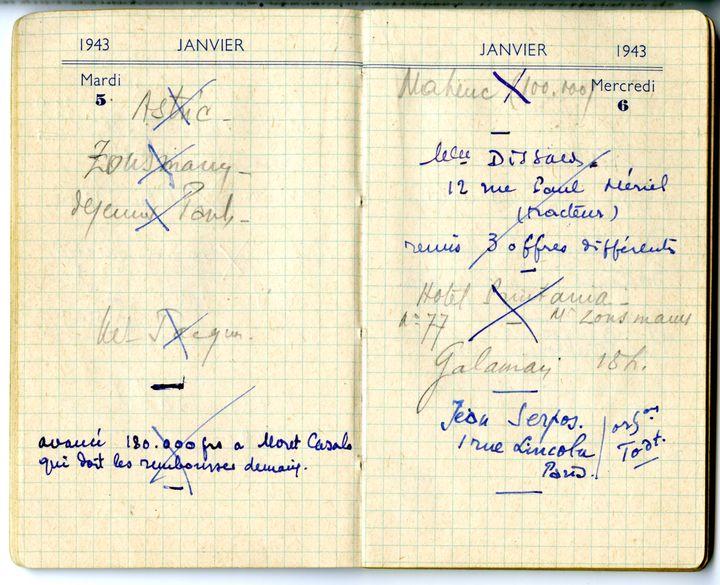 1943 JANVIER
Mardi
5
Astric -
Zousmann -
déjeuner Pont
avancé 180.000 frs a Moret Casals
qui doit les rembourser demain.
JANVIER 1943
Mercredi
6
Mahenc (100.000)
12 rue Paul Mériel
(tracteur)
remis 3 offres différents
Hotel Printania -
N° 77 - Mr Zousmann
Galaman 18h.
Jean Serpos.
1 rue Lincoln
Paris.
orgon
Todt.